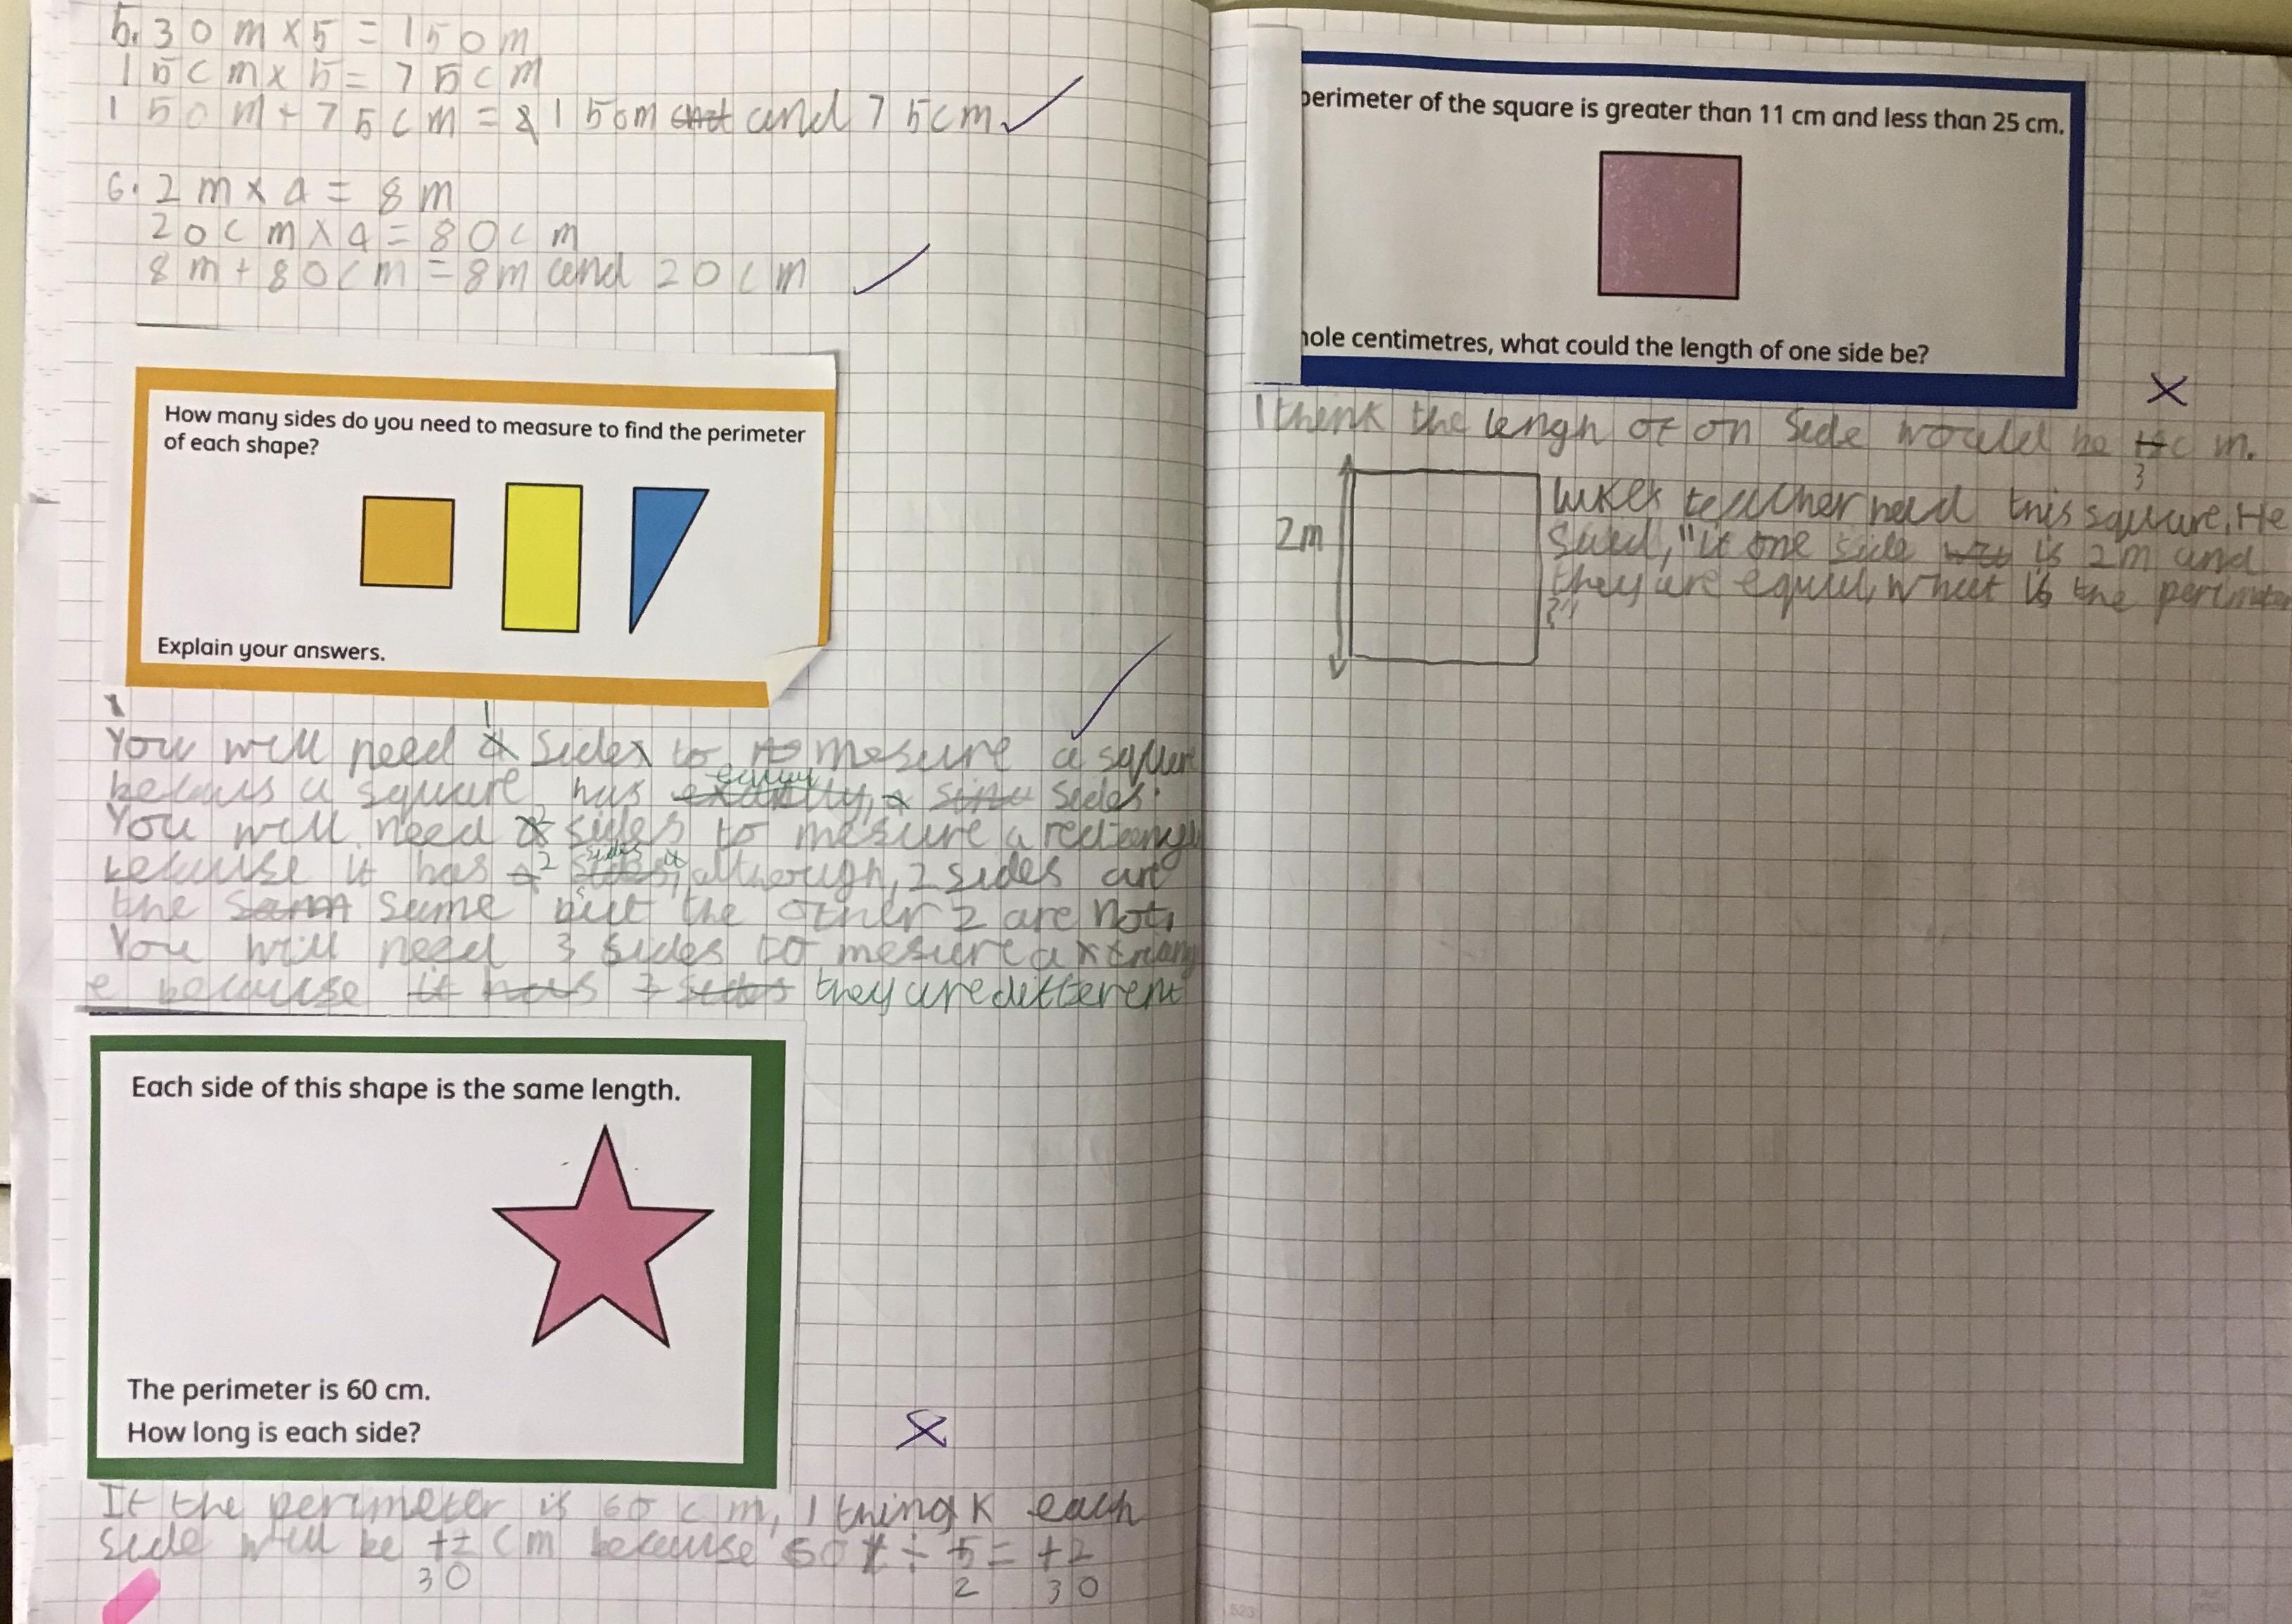 5. 30m x 5 = 150m
15cm x 5 = 75cm
150m + 75cm = 150m and 75cm
6. 2m x 4 = 8m
20cm x 4 = 80cm
8m + 80cm = 8m and 20cm
How many sides do you need to measure to find the perimeter
of each shape?
Explain your answers.
1
You will need sides to mesure a square
becaus a square has equal sides.
You will need 2 sides to mesure a rectangl
because it has 2 sides although, 2 sides are
the same but the other 2 are not.
You will need 3 sides to mesure a triang
e because it has 3 sides they are different
Each side of this shape is the same length.
The perimeter is 60 cm.
How long is each side?
If the perimeter is 60 cm, I think each
side will be 12 cm because 60 ÷ 5 = 12
30 2 30
perimeter of the square is greater than 11 cm and less than 25 cm.
hole centimetres, what could the length of one side be?
I think the lengh of on side would be 12cm.
3
2m
Lukes teacher had this square. He
said, "if one side is 2m and
they are equel, what is the perimeter
?"